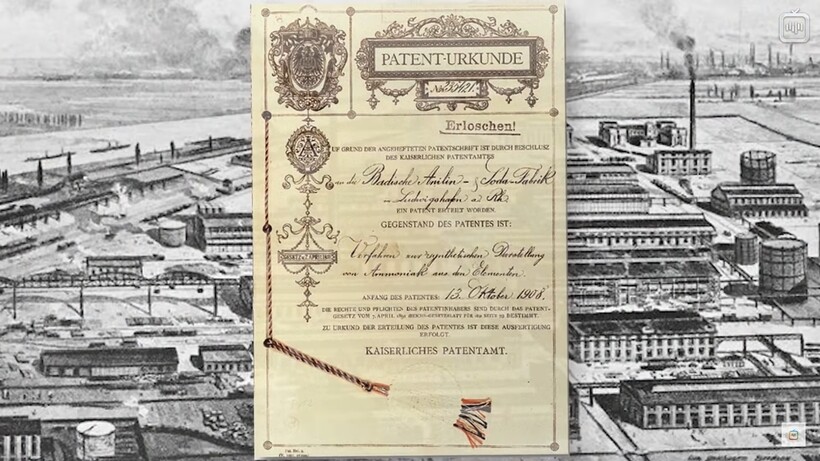 PATENT-URKUNDE
Erloschen!
AUF GRUND DER ANGEHEFTETEN PATENTSCHRIFT IST DURCH BESCHLUSZ
DES KAISERLICHEN PATENTAMTES
an die Badische Anilin- & Soda-Fabrik
in Ludwigshafen a/ Rh.
EIN PATENT ERTEILT WORDEN.
GEGENSTAND DES PATENTES IST:
Verfahren zur synthetischen Darstellung
von Ammoniak aus den Elementen.
ANFANG DES PATENTES: 13. Oktober 1908.
DIE RECHTE UND PFLICHTEN DES PATENTINHABERS SIND DURCH DAS PATENT-
GESETZ VOM 7. APRIL 1891 BESTIMMT.
ZU URKUND DER ERTEILUNG DES PATENTES IST DIESE AUSFERTIGUNG
ERFOLGT.
KAISERLICHES PATENTAMT.